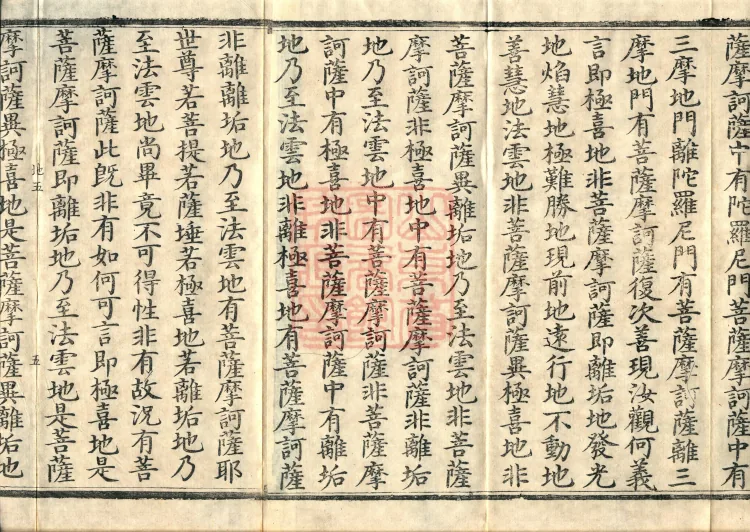 薩摩訶薩中有陀羅尼門菩薩摩訶薩中有
三摩地門離陀羅尼門有菩薩摩訶薩離三
摩地門有菩薩摩訶薩復次善現汝觀何義
言即極喜地非菩薩摩訶薩即離垢地發光
地焰慧地極難勝地現前地遠行地不動地
善慧地法雲地非菩薩摩訶薩異極喜地非
菩薩摩訶薩異離垢地乃至法雲地非菩薩
摩訶薩非極喜地中有菩薩摩訶薩非離垢
地乃至法雲地中有菩薩摩訶薩非菩薩摩
訶薩中有極喜地非菩薩摩訶薩中有離垢
地乃至法雲地非離極喜地有菩薩摩訶薩
非離離垢地乃至法雲地有菩薩摩訶薩耶
世尊若菩提若薩埵若極喜地若離垢地乃
至法雲地尚畢竟不可得性非有故況有菩
薩摩訶薩此既非有如何可言即極喜地是
菩薩摩訶薩即離垢地乃至法雲地是菩薩
地五 五
摩訶薩異極喜地是菩薩摩訶薩異離垢地